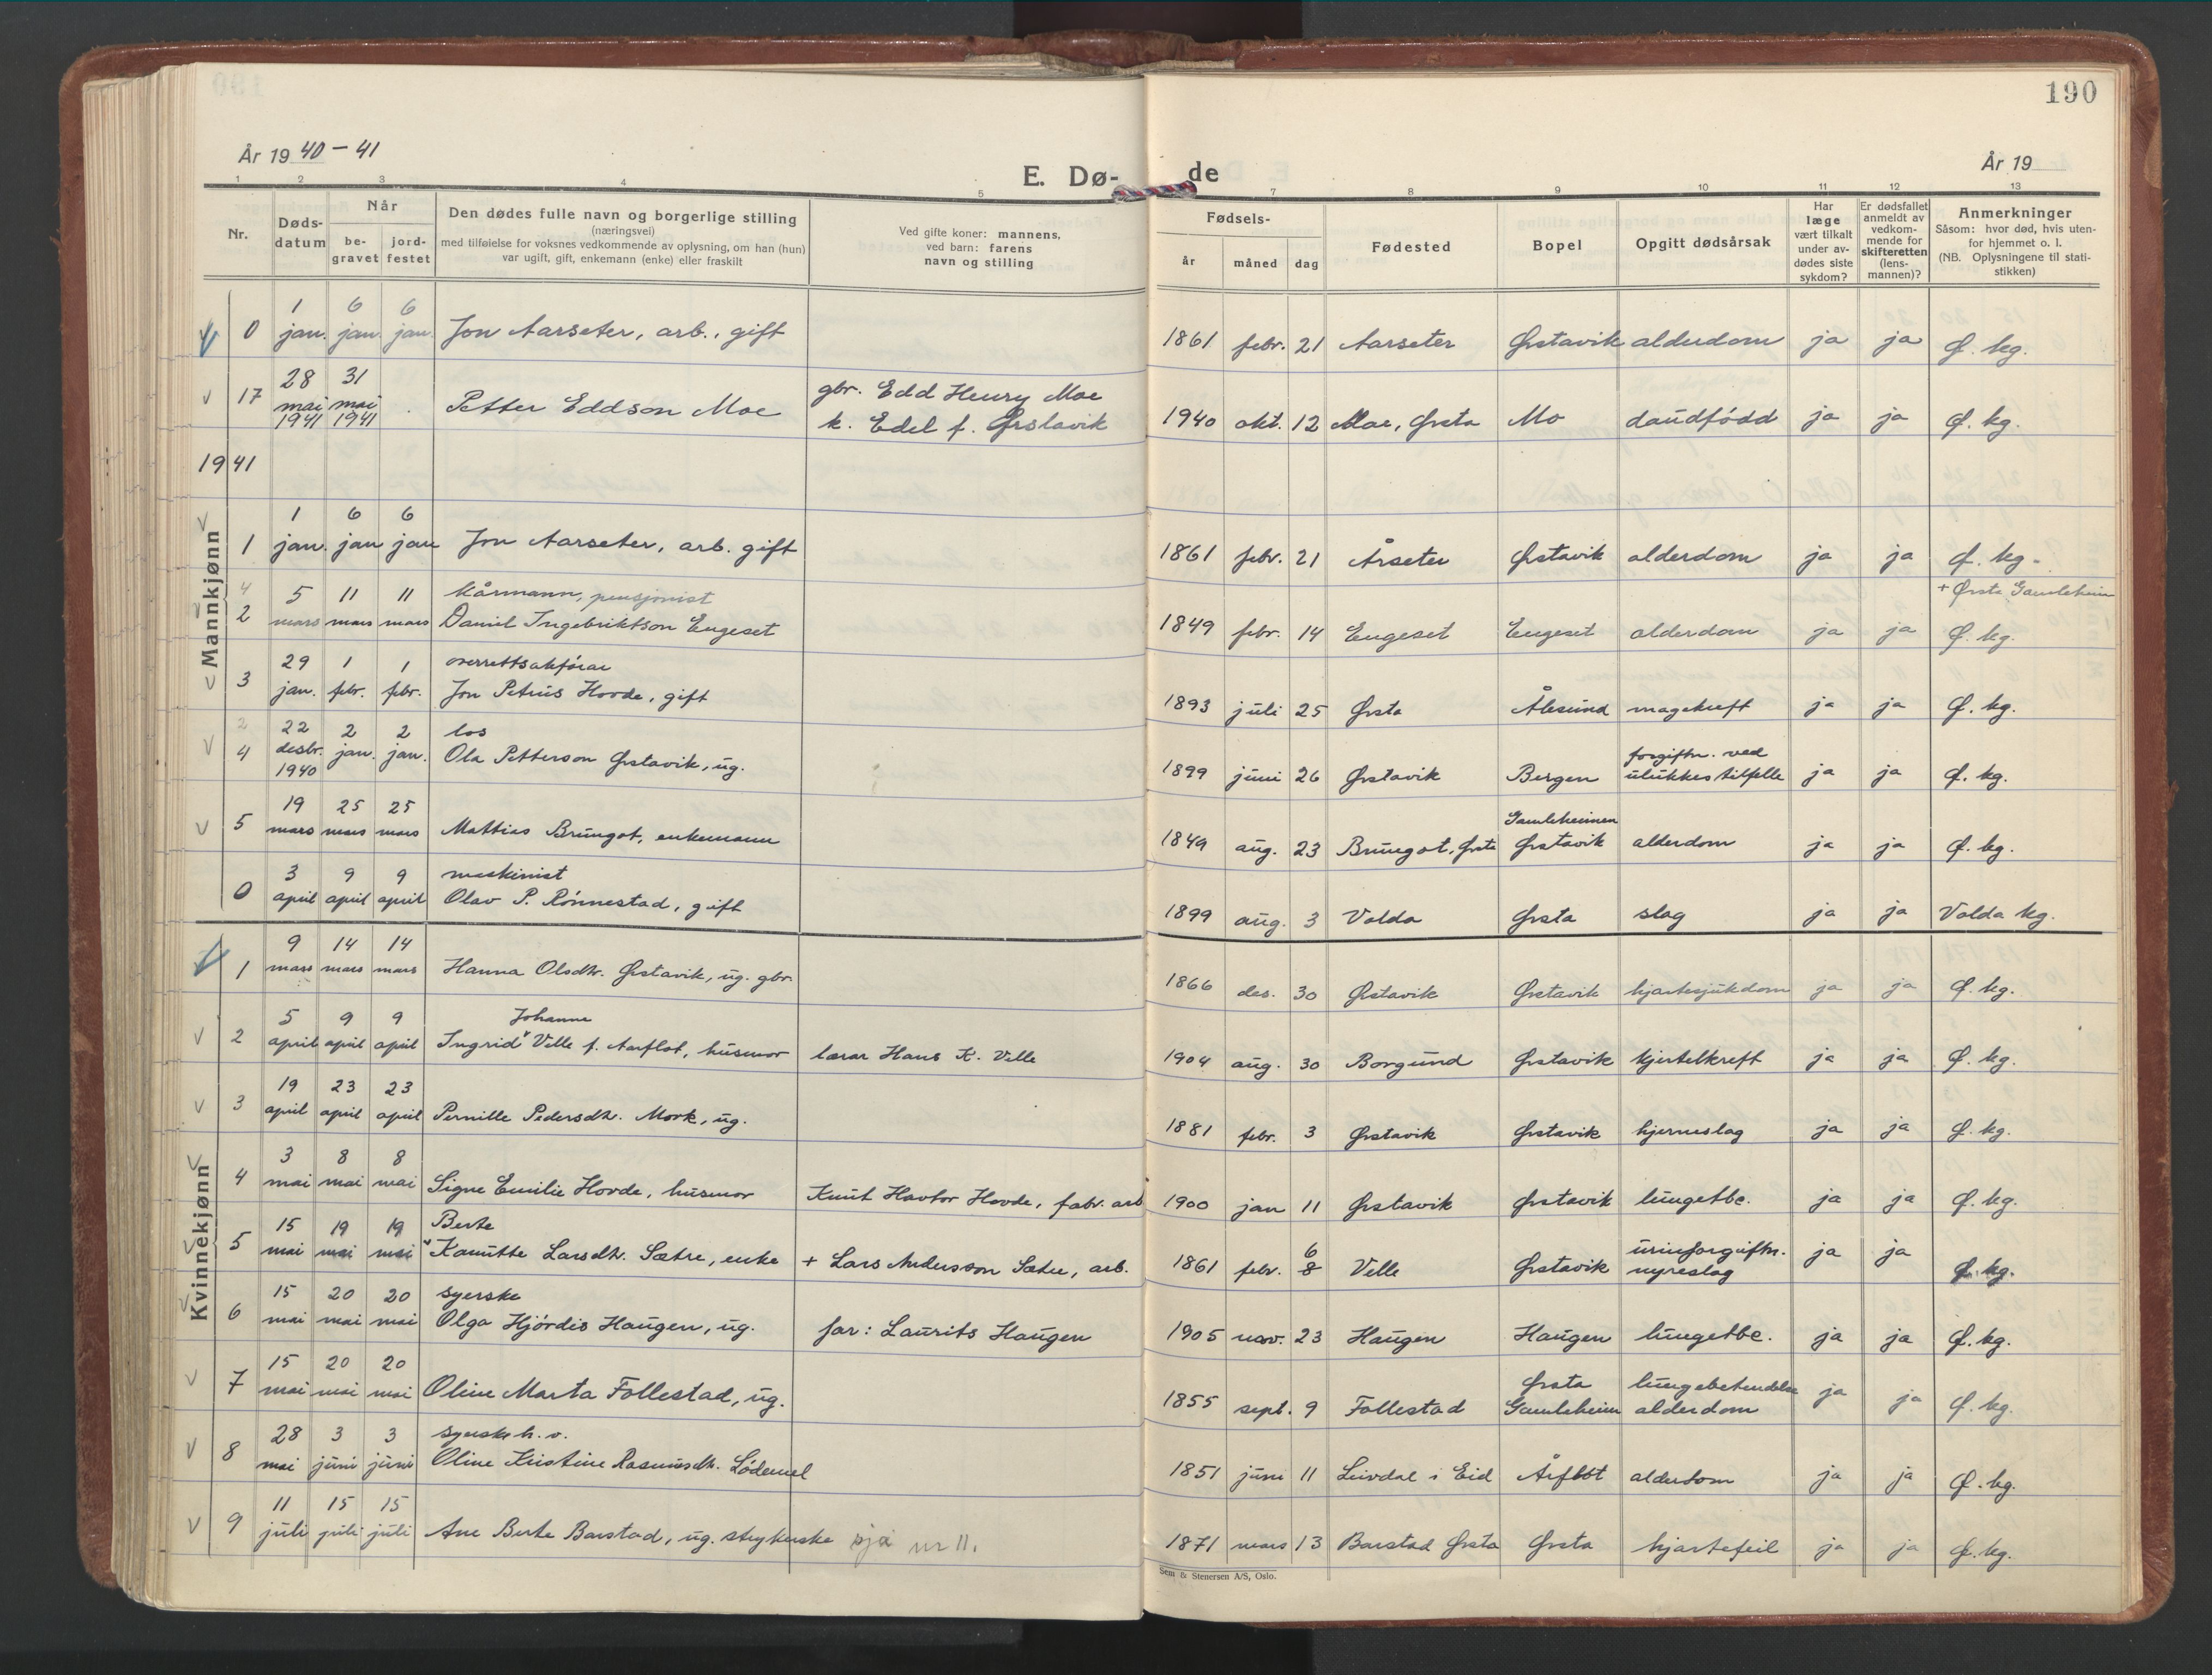 190
År 19 40 - 41
År 19
E. Dø- de
1 2 3 4 5 7 8 9 10 11 12 13
Nr.
Døds-
datum
Når
be-
gravet
jord-
festet
Den dødes fulle navn og borgerlige stilling
(næringsvei)
med tilføielse for voksnes vedkommende av oplysning, om han (hun)
var ugift, gift, enkemann (enke) eller fraskilt
Ved gifte koner: mannens,
ved barn: farens
navn og stilling
Fødsels-
år måned dag
Fødested
Bopel
Opgitt dødsårsak
Har
læge
vært tilkalt
under av-
dødes siste
sykdom?
Er dødsfallet
anmeldt av
vedkom-
mende for
skifteretten
(lens-
mannen)?
Anmerkninger
Såsom: hvor død, hvis uten-
for hjemmet o. l.
(NB. Oplysningene til stati-
stikken)
1 6 6
0 jan. jan. jan. Jon Aarseter, arb., gift 1861 febr. 21 Aarseter Ørstavik alderdom ja ja Ø. kg.
28 31 gbr. Edd Henry Moe
17 mai mai Petter Eddson Moe 1940 okt. 12 Moe, Ørsta Mo daudfødd ja ja Ø. kg.
1941 1941 k. Edel f. Ørstavik
1941
Mannkjønn
1 6 6
1 jan. jan jan Jon Aarseter, arb. gift 1861 febr. 21 Årseter Ørstavik alderdom ja ja Ø. kg.
4 5 11 11 kårmann, pensjonist + Ørsta Gamleheim
2 mars mars mars Daniel Ingebriktson Engeset 1849 febr. 14 Engeset Engeset alderdom ja ja Ø. kg.
29 1 1 overrettsakførar
3 jan. febr. febr. Jon Petrus Hovde, gift 1893 juli 25 Ørsta Ålesund magekreft ja ja Ø. kg.
2 22 2 2 los forgiftn. ved
4 desbr. jan. jan. Ola Petterson Ørstavik, ug. 1899 juni 26 Ørstavik Bergen ulukkestilfelle ja ja Ø. kg.
1940
19 25 25 Gamleheimen
5 mars mars mars Mattias Brungot, enkemann 1849 aug. 23 Brungot, Ørsta Ørstavik alderdom ja ja Ø. kg.
3 9 9 maskinist
0 april april april Olav P. Rønnestad, gift 1899 aug. 3 Volda Ørsta slag ja ja Volda kg.
Kvinnekjønn
9 14 14
1 mars mars mars Hanna Olsdtr. Ørstavik, ug. gbr. 1866 des. 30 Ørstavik Ørstavik hjartesjukdom ja ja Ø. kg.
5 9 9 Johanne
2 april april april Ingrid Velle f. Aarflot, husmor lærar Hans K. Velle 1904 aug. 30 Borgund Ørstavik kjertelkreft ja ja Ø. kg.
19 23 23
3 april april april Pernille Pedersdtr. Mork, ug. 1881 febr. 3 Ørstavik Ørstavik hjerneslag ja ja Ø. kg.
3 8 8
4 mai mai mai Signe Emilie Hovde, husmor Knut Havtor Hovde, fabr. arb 1900 jan 11 Ørstavik Ørstavik lungetbc. ja ja Ø. kg.
15 19 19 Berte 6 urinforgiftn.
5 mai mai mai Kanutte Larsdtr. Sætre, enke + Lars Andersson Sætre, arb. 1861 febr. 8 Velle Ørstavik nyreslag ja ja Ø. kg.
15 20 20 syerske
6 mai mai mai Olga Hjørdis Haugen, ug. far: Laurits Haugen 1905 nov. 23 Haugen Haugen lungetbc. ja ja Ø. kg.
15 20 20 Ørsta lungebetendelse
7 mai mai mai Oline Marta Follestad, ug. 1855 sept. 9 Follestad Gamleheim alderdom ja ja Ø. kg.
28 3 3 syerske h. v.
8 mai juni juni Oline Kristine Rasmusdtr. Lødemel 1851 juni 11 Leivdal i Eid Årflot alderdom ja ja Ø. kg.
11 15 15
9 juli juli juli Ane Berte Barstad, ug. strykerske sjå nr 11. 1871 mars 13 Barstad Ørsta Ørsta hjartefeil ja ja Ø. kg.
Sem & Stenersen A/S, Oslo.